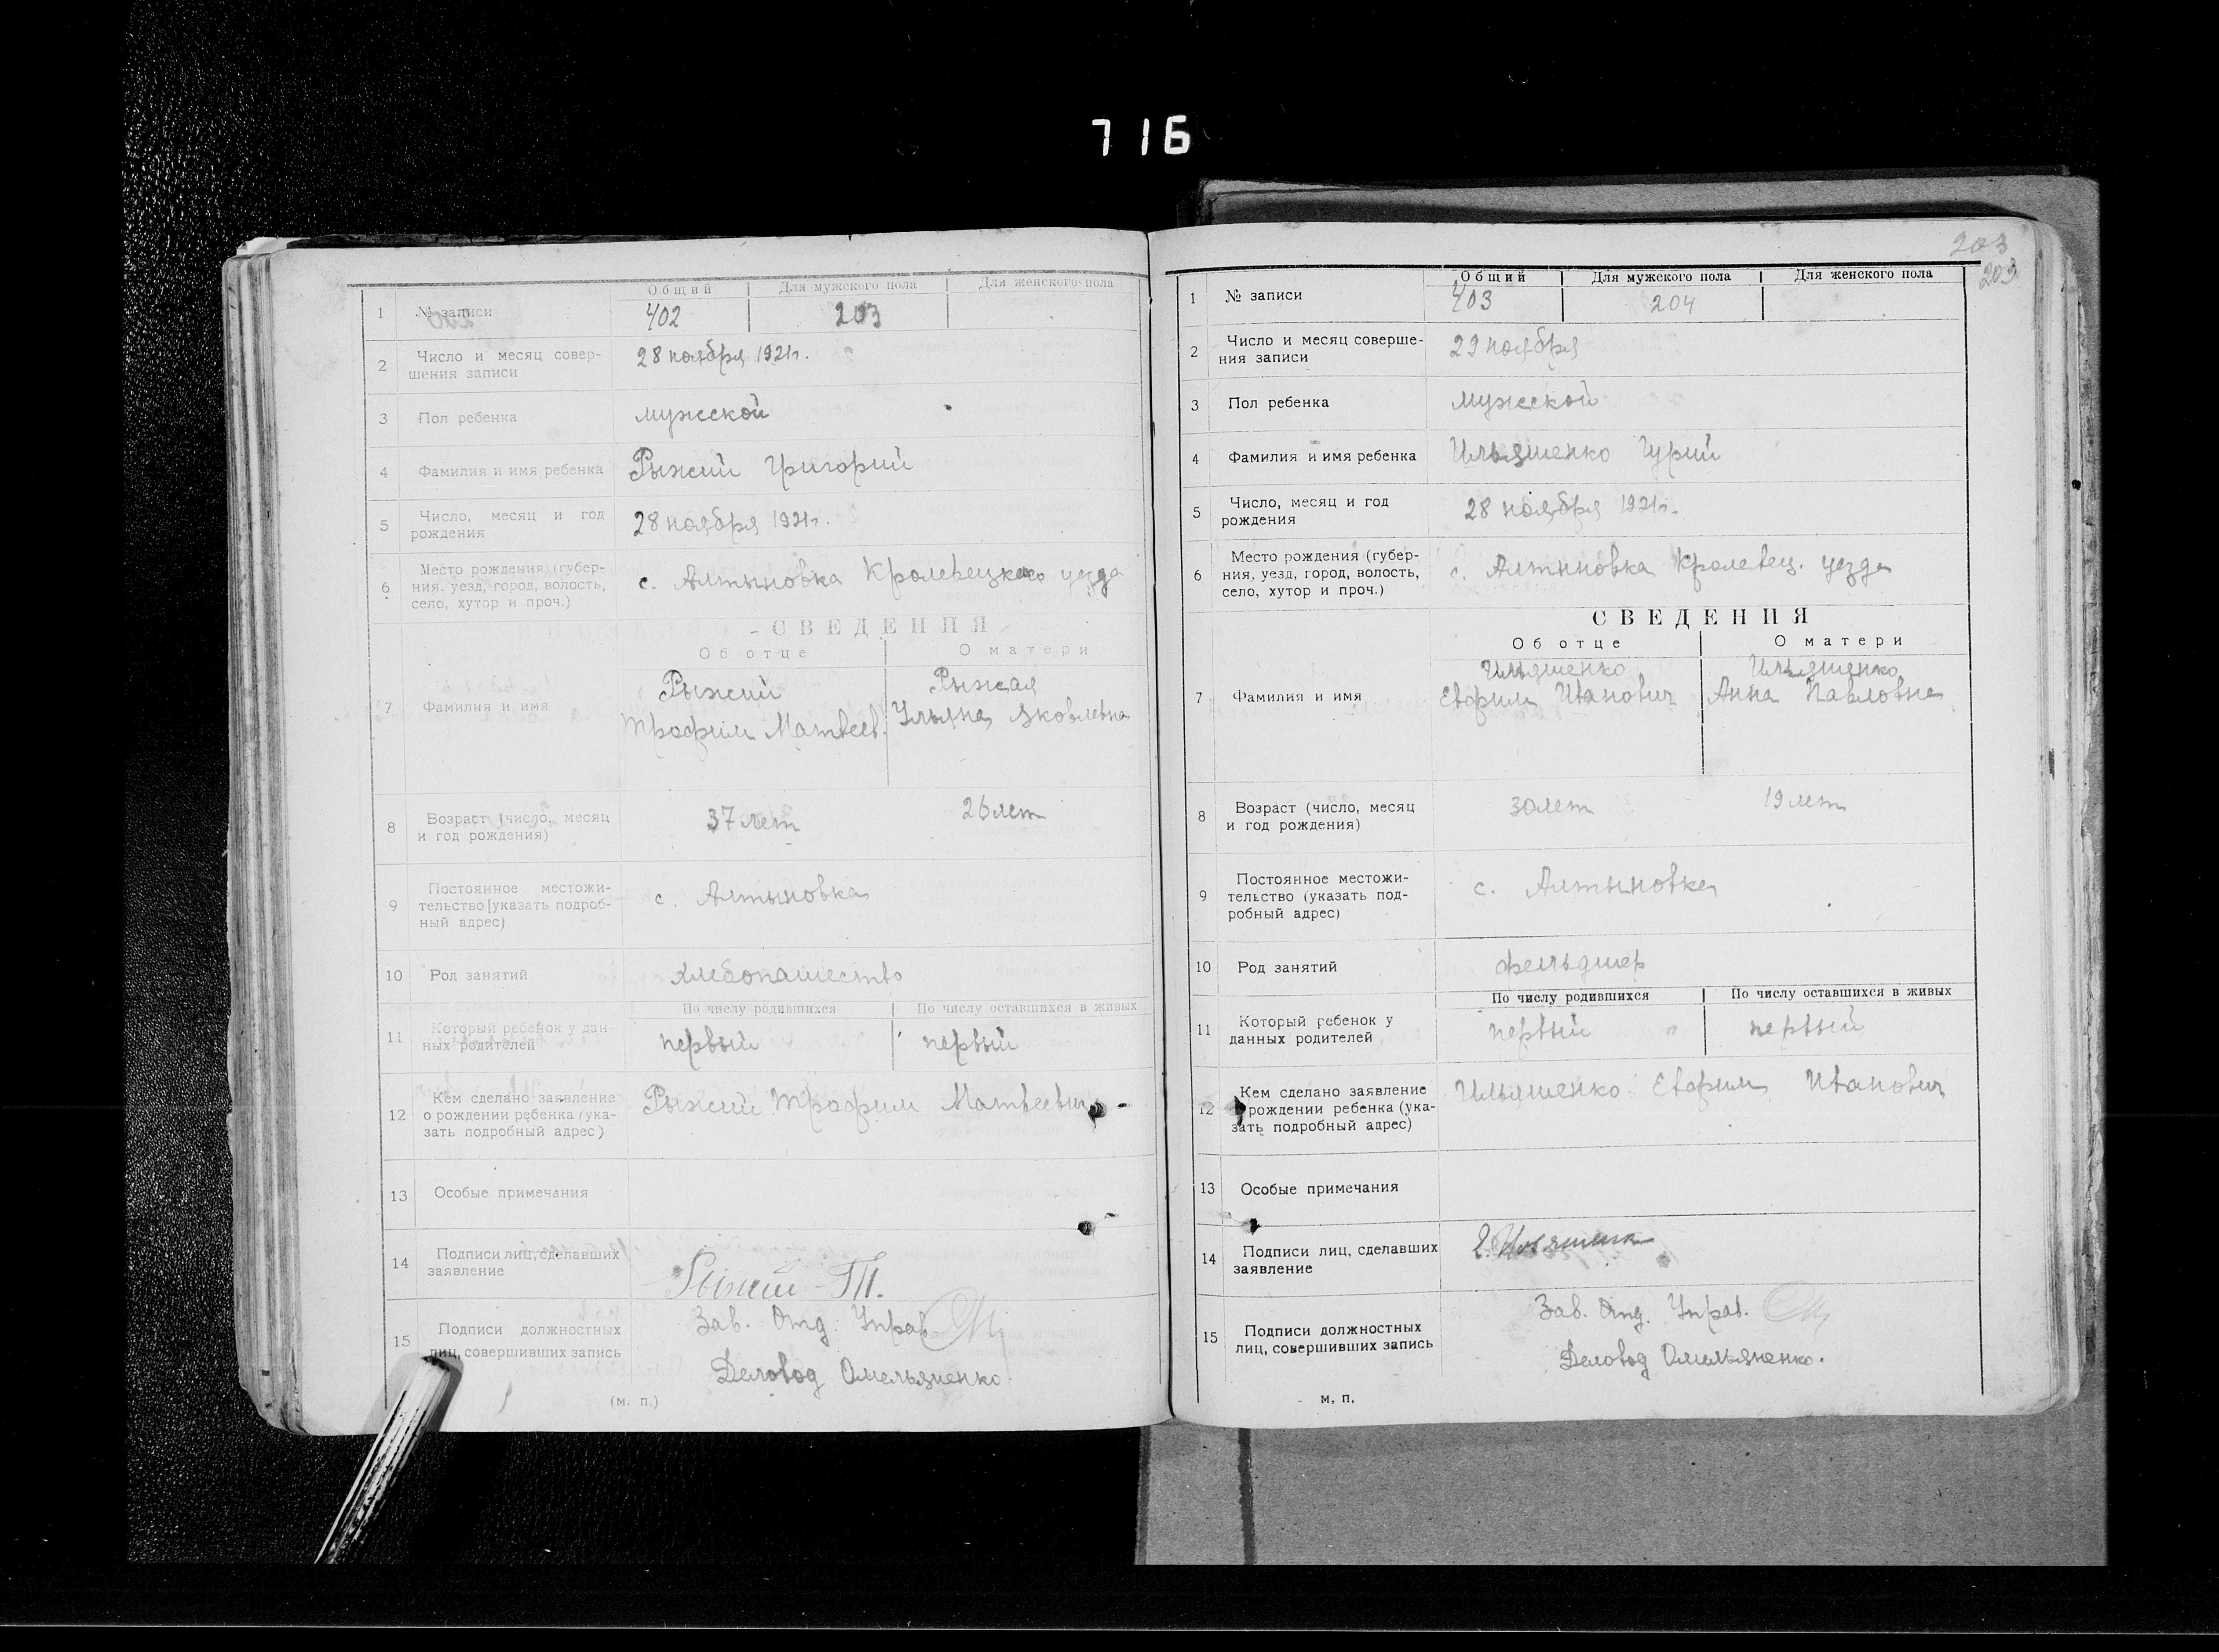 716
Общий Для мужского пола Для женского пола
1 № записи 402 203
2 Число и месяц совер-
шения записи 28 ноября 1921г.
3 Пол ребенка мужской
4 Фамилия и имя ребенка Рыжий Григорий
5 Число, месяц и год
рождения 28 ноября 1921г.
6 Место рождения (губер-
ния, уезд, город, волость,
село, хутор и проч.) с. Алтыновка Кролевецкого уезда
СВЕДЕНИЯ
Об отце О матери
7 Фамилия и имя
Рыжий Рыжая
Трофим Матвеев. Ульяна Яковлевна
8 Возраст (число, месяц
и год рождения) 37 лет 26 лет
9 Постоянное местожи-
тельство [указать подроб-
ный адрес) с. Алтыновка
10 Род занятий хлебопашество
По числу родившихся По числу оставшихся в живых
11 Который ребенок у дан-
ных родителей первый первый
12 Кем сделано заявление
о рождении ребенка (ука-
зать подробный адрес) Рыжий Трофим Матвеевич
13 Особые примечания
14 Подписи лиц, сделавших
заявление Рыжий Т.
15 Подписи должностных
лиц, совершивших запись
Зав. Отд. Управ.
Деловод Омельяненко.
(м. п.)
203
203
Общий Для мужского пола Для женского пола
1 № записи 403 204
2 Число и месяц соверше-
ния записи 29 ноября
3 Пол ребенка мужской
4 Фамилия и имя ребенка Ильяшенко Гурий
5 Число, месяц и год
рождения 28 ноября 1921г.
6 Место рождения (губер-
ния, уезд, город, волость,
село, хутор и проч.) с. Алтыновка Кролевец. уезда
СВЕДЕНИЯ
Об отце О матери
7 Фамилия и имя
Ильяшенко Ильяшенко
Евфим Иванович Анна Павловна
8 Возраст (число, месяц
и год рождения) 30 лет 19 лет
9 Постоянное местожи-
тельство (указать под-
робный адрес) с. Алтыновка
10 Род занятий фельдшер
По числу родившихся По числу оставшихся в живых
11 Который ребенок у
данных родителей первый первый
12 Кем сделано заявление
о рождении ребенка (ука-
зать подробный адрес) Ильяшенко Евфим Иванович
13 Особые примечания
14 Подписи лиц, сделавших
заявление Е. Ильяшенко
15 Подписи должностных
лиц, совершивших запись
Зав. Отд. Управ.
Деловод Омельяненко.
м. п.